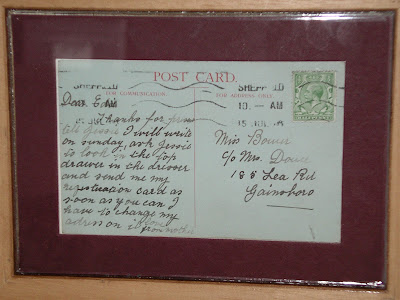 SHEFFIELD
SHEFFIELD
POST CARD.
FOR COMMUNICATION.
FOR ADDRESS ONLY.
10. — AM
Dear
Thanks for
I will write
on sunday ask Jessie
to look in the top
drawer in the dresser
and send me my
registration card as
soon as you can I
have to change my
adress on it
from mother
Miss
c/o Mrs.
188 Lea Rd
Gainsboro